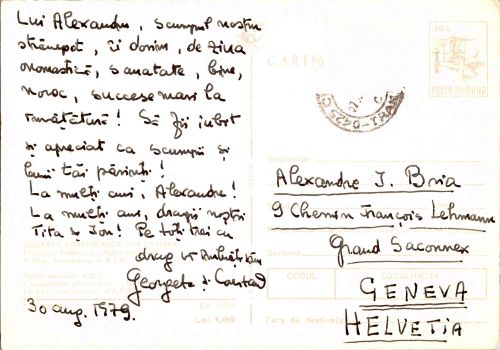 Lui Alexandru, scumpul nostru
strănepot, îi dorim, de ziua
onomastică, sanatate, bine,
noroc, succese mari la
învățătură! Să fii iubit
și apreciat ca scumpii și
bunii tăi părinți!
La mulți ani, Alexandre!
La mulți ani, dragii noștri
Tita și Ion! Pe toți trei cu
drag vă îmbrățișăm
Georgeta și
30 aug. 1979.
CARTE
40 b
POSTA ROMANA
Destinatar
Alexandre I. Bria
9 Chemin François Lehmann
Grand Saconnex
Sectorul
CODUL
LOCALITATEA
GENEVA
HELVETIA
Țara de destinație
Lei 1,90